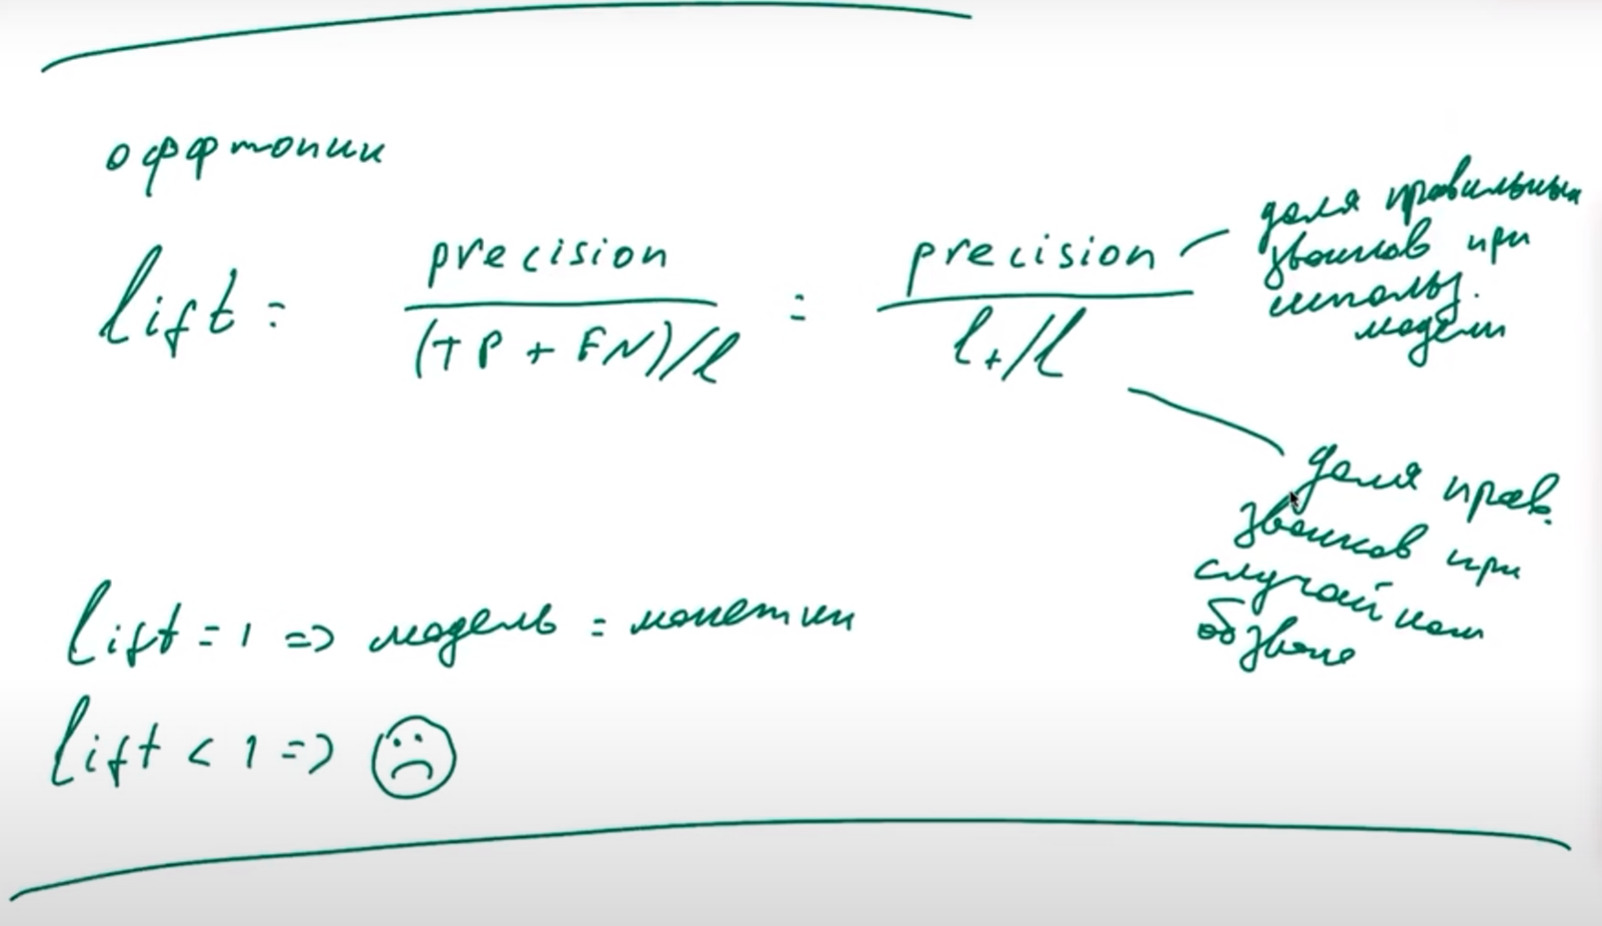 оффтопик
lift = precision / (TP + FN)/l = precision / l₊/l
доля правильных
звонков при
использ.
модели
доля прав.
звонков при
случайном
обзвоне
lift = 1 => модель = монетки
lift < 1 => ☹